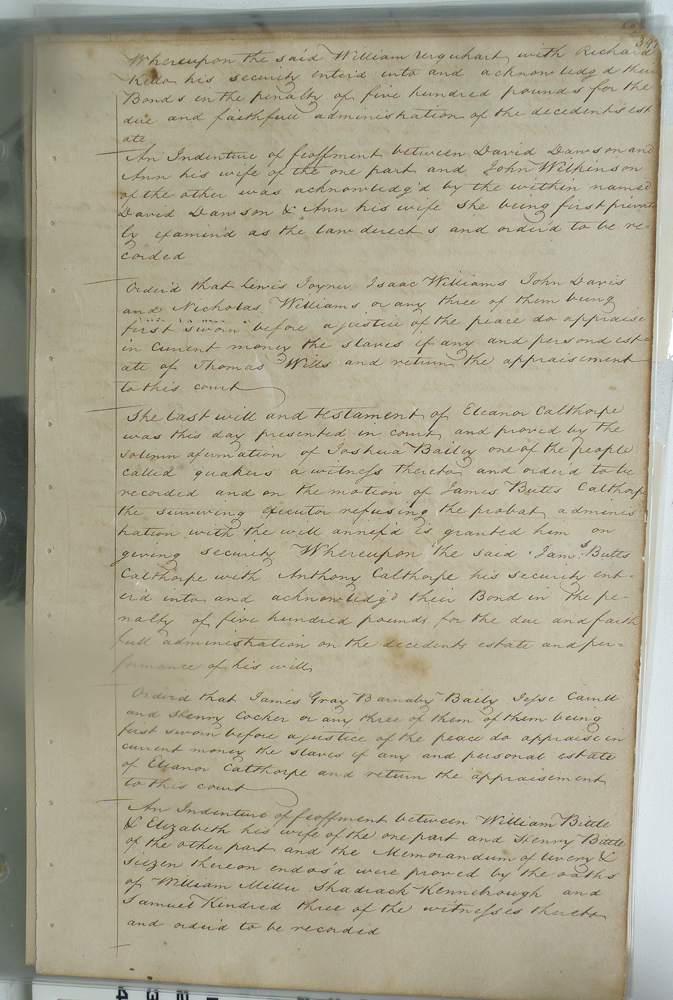 Whereupon the said William Urquhart with Richard
Kello his security enter'd into and acknowledg'd their
Bonds in the penalty of five hundred pounds for the
due and faithfull administration of the decedents est
ate
An Indenture of feoffment between David Dawson and
Ann his wife of the one part and John Wilkinson
of the other was acknowledg'd by the within named
David Dawson & Ann his wife she being first private
ly examin'd as the law directs and order'd to be re-
corded
Order'd that Lewis Joyner Isaac Williams John Davis
and Nicholas Williams or any three of them being
first sworn before a justice of the peace do appraise
in current money the slaves if any and personal est
ate of Thomas Wills and return the appraisement
to this court
The last will and testament of Eleanor Calthorpe
was this day presented in court and proved by the
solemn afirmation of Joshua Bailey one of the people
called quakers a witness thereto and order'd to be
recorded and on the motion of James Butts Calthorp
the surviving executor refusing the probat adminis
tration with the will annex'd is granted him on
giving security Whereupon the said Jams. Butts
Calthorpe with Anthony Calthorpe his security ent-
er'd into and acknowledg'd their Bond in the pe-
nalty of five hundred pounds for the due and faith
full administration on the decedents estate and per-
formance of his will
Order'd that James Gray Barnaby Baily Jesse
and Henry Cocker or any three of them of them being
first sworn before a justice of the peace do appraise in
current money the slaves if any and personal estate
of Eleanor Calthorpe and return the appraisement
to this court
An Indenture of feoffment between William Bittle
& Elizabeth his wife of the one part and Henry Bittle
of the other part and the Memorandum of livery &
siezen thereon endos'd were proved by the oaths
of William Miller Shadrack Kennebrough and
Samuel Kindred three of the witnesses thereto
and order'd to be recorded